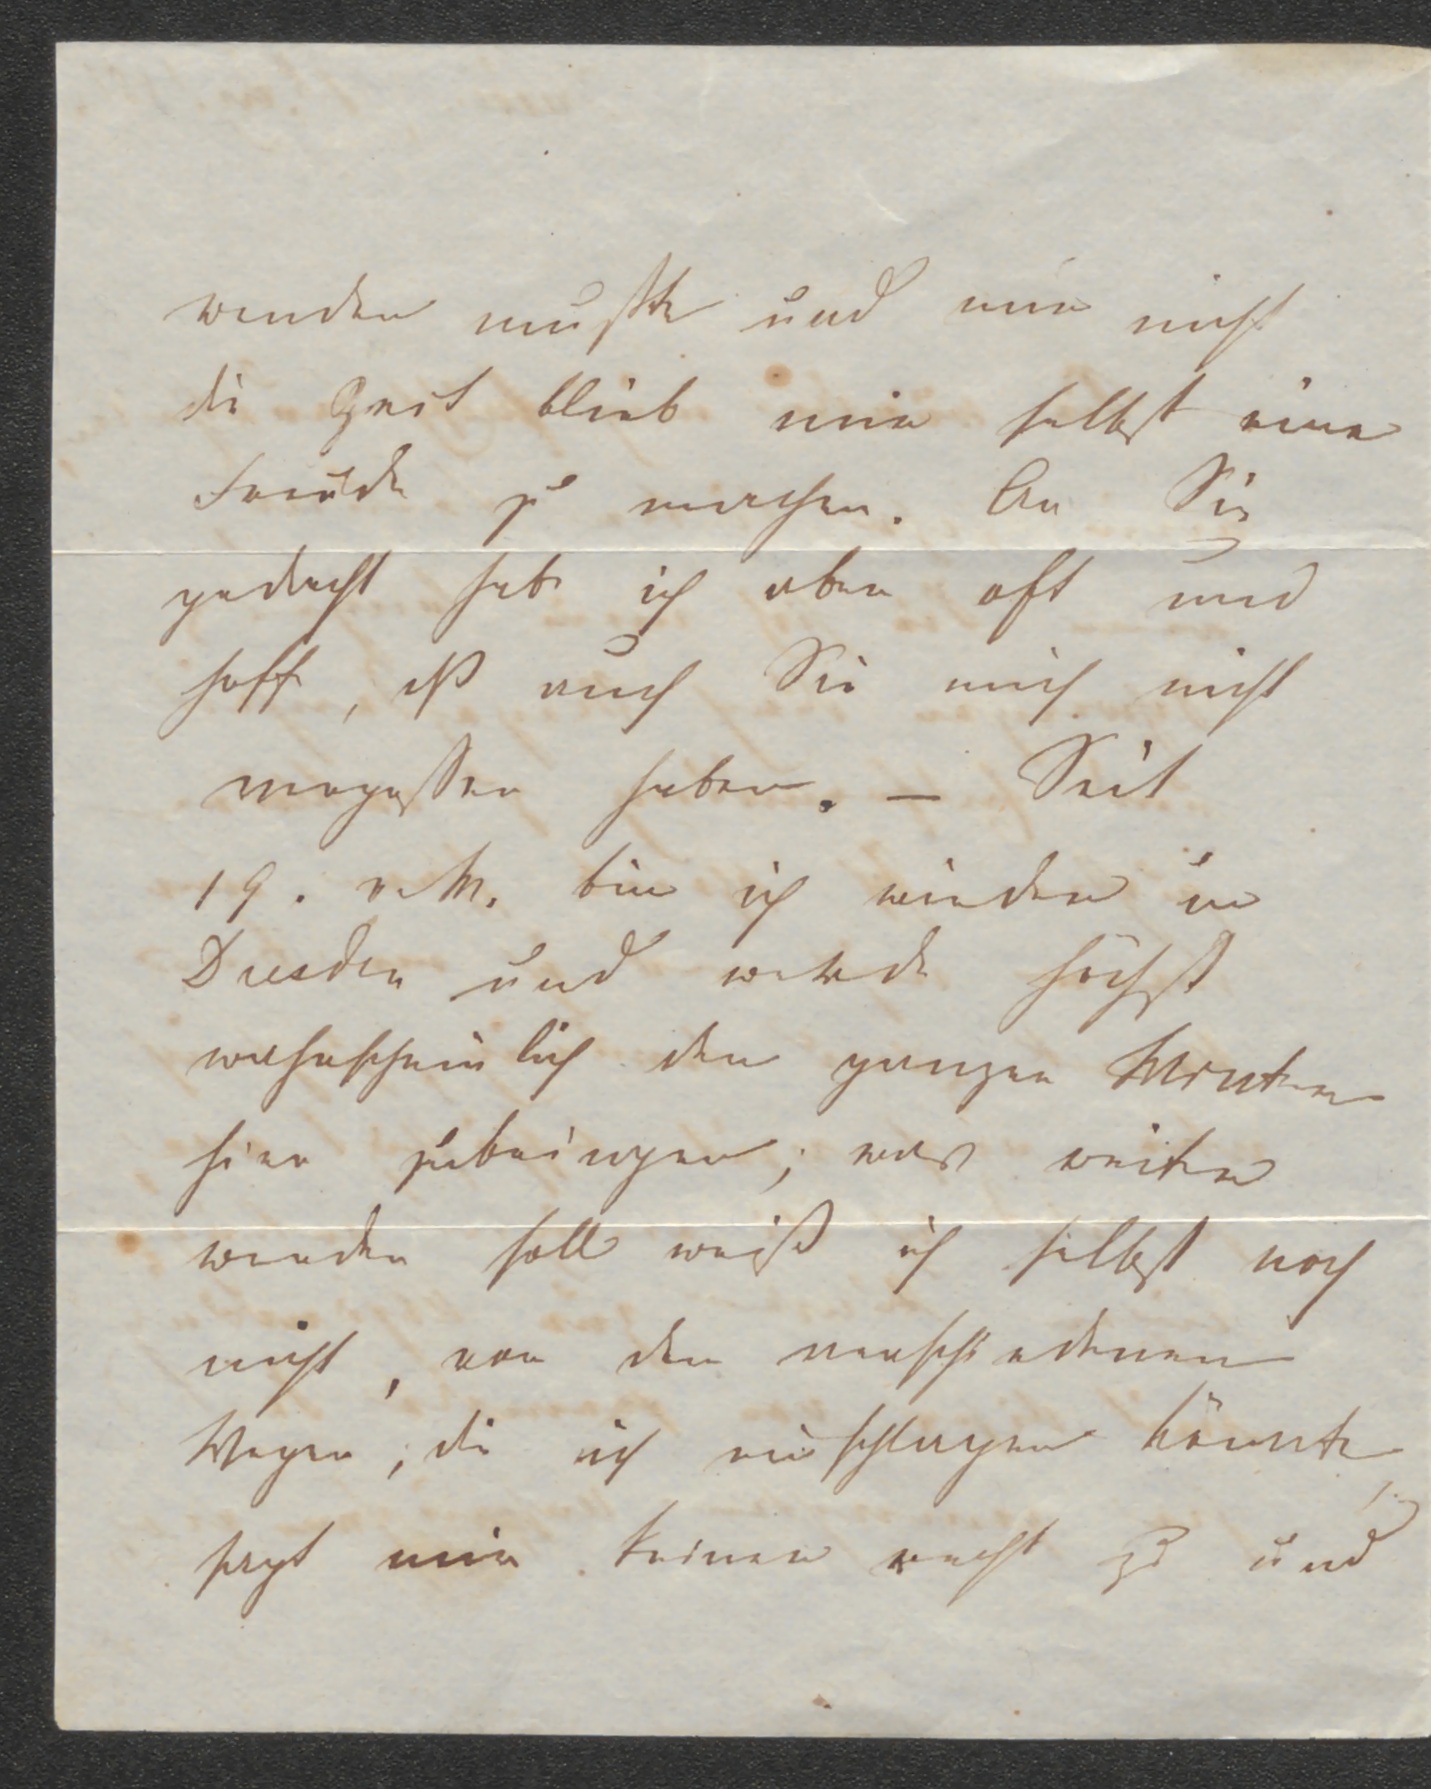 wenden mußte und mir nicht
die Zeit blieb mir selbst eine
Freude zu machen. An Sie
gedacht hab ich aber oft und
hoffe, daß auch Sie mich nicht
vergessen haben. – Seit
19. v. M. bin ich wieder in
Dresden und werde höchst
wahrscheinlich den ganzen Winter
hier zubringen; was weiter
werden soll weiß ich selbst noch
nicht, von den verschiedenen
Wegen, die ich einschlagen könnte,
sagt mir keiner recht zu und